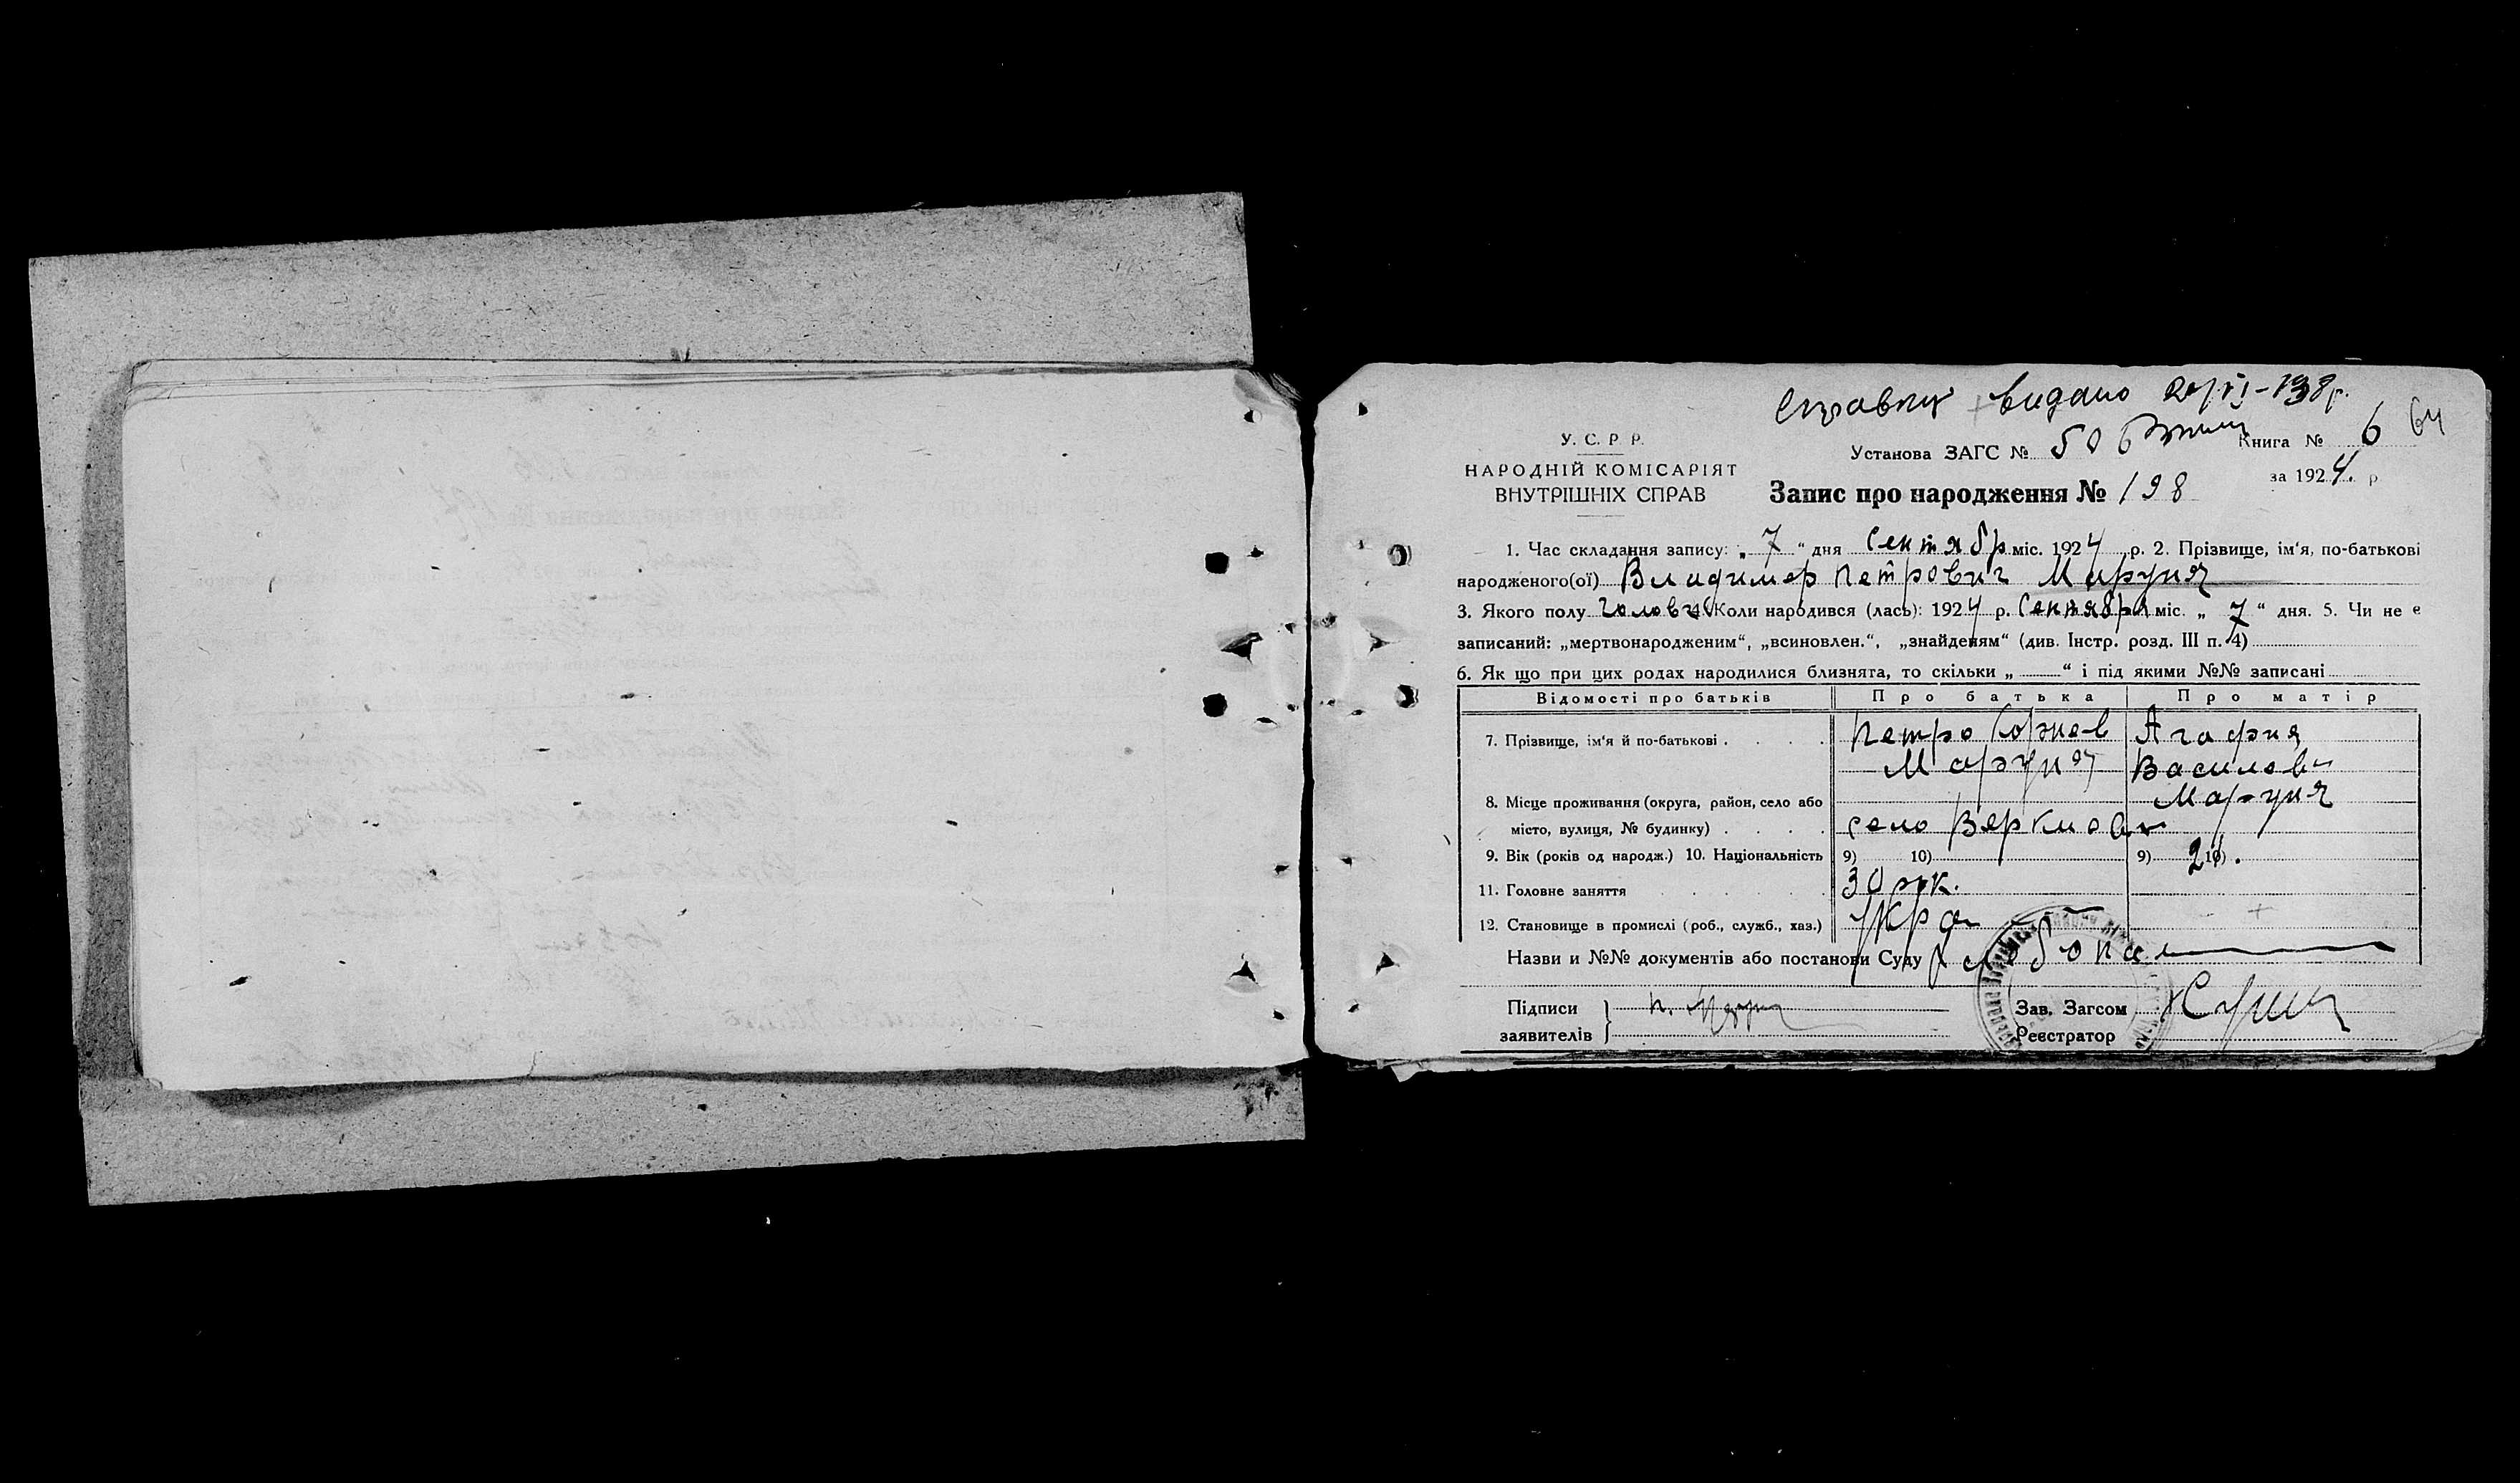 видано
У. С. Р. Р.
НАРОДНІЙ КОМІСАРІЯТ
ВНУТРІШНІХ СПРАВ
Установа ЗАГС №
Книга № 6 64
за 1924. р
Запис про народження № 198
1. Час складання запису: „ 7 “ дня Сентябр міс. 1924 р. 2. Прізвище, ім‘я, по-батькові
народженого(ої) Владимер Петрович Маруня
3. Якого полу чолові 4. Коли народився (лась): 1924 р. Сентября міс. „ 7 “ дня. 5. Чи не є
записаний: „мертвонародженим“, „всиновлен.“, „знайденям“ (див. Інстр. розд. III п. 4)
6. Як що при цих родах народилися близнята, то скільки „ “ і під якими №№ записані
Відомості про батьків Про батька Про матір
7. Прізвище, ім‘я й по-батькові . . . . Петро Агафия
Маруня Василов
Маруня
8. Місце проживання (округа, район, село або
місто, вулиця, № будинку) . . . . село
9. Вік (років од народж.) 10. Національність 9) 10) 9) 10)
11. Головне заняття . . . . . 30
12. Становище в промислі (роб., служб., хаз.) Укра
Назви и №№ документів або постанови Суду
Підписи
заявителів
Зав. Загсом
Реєстратор